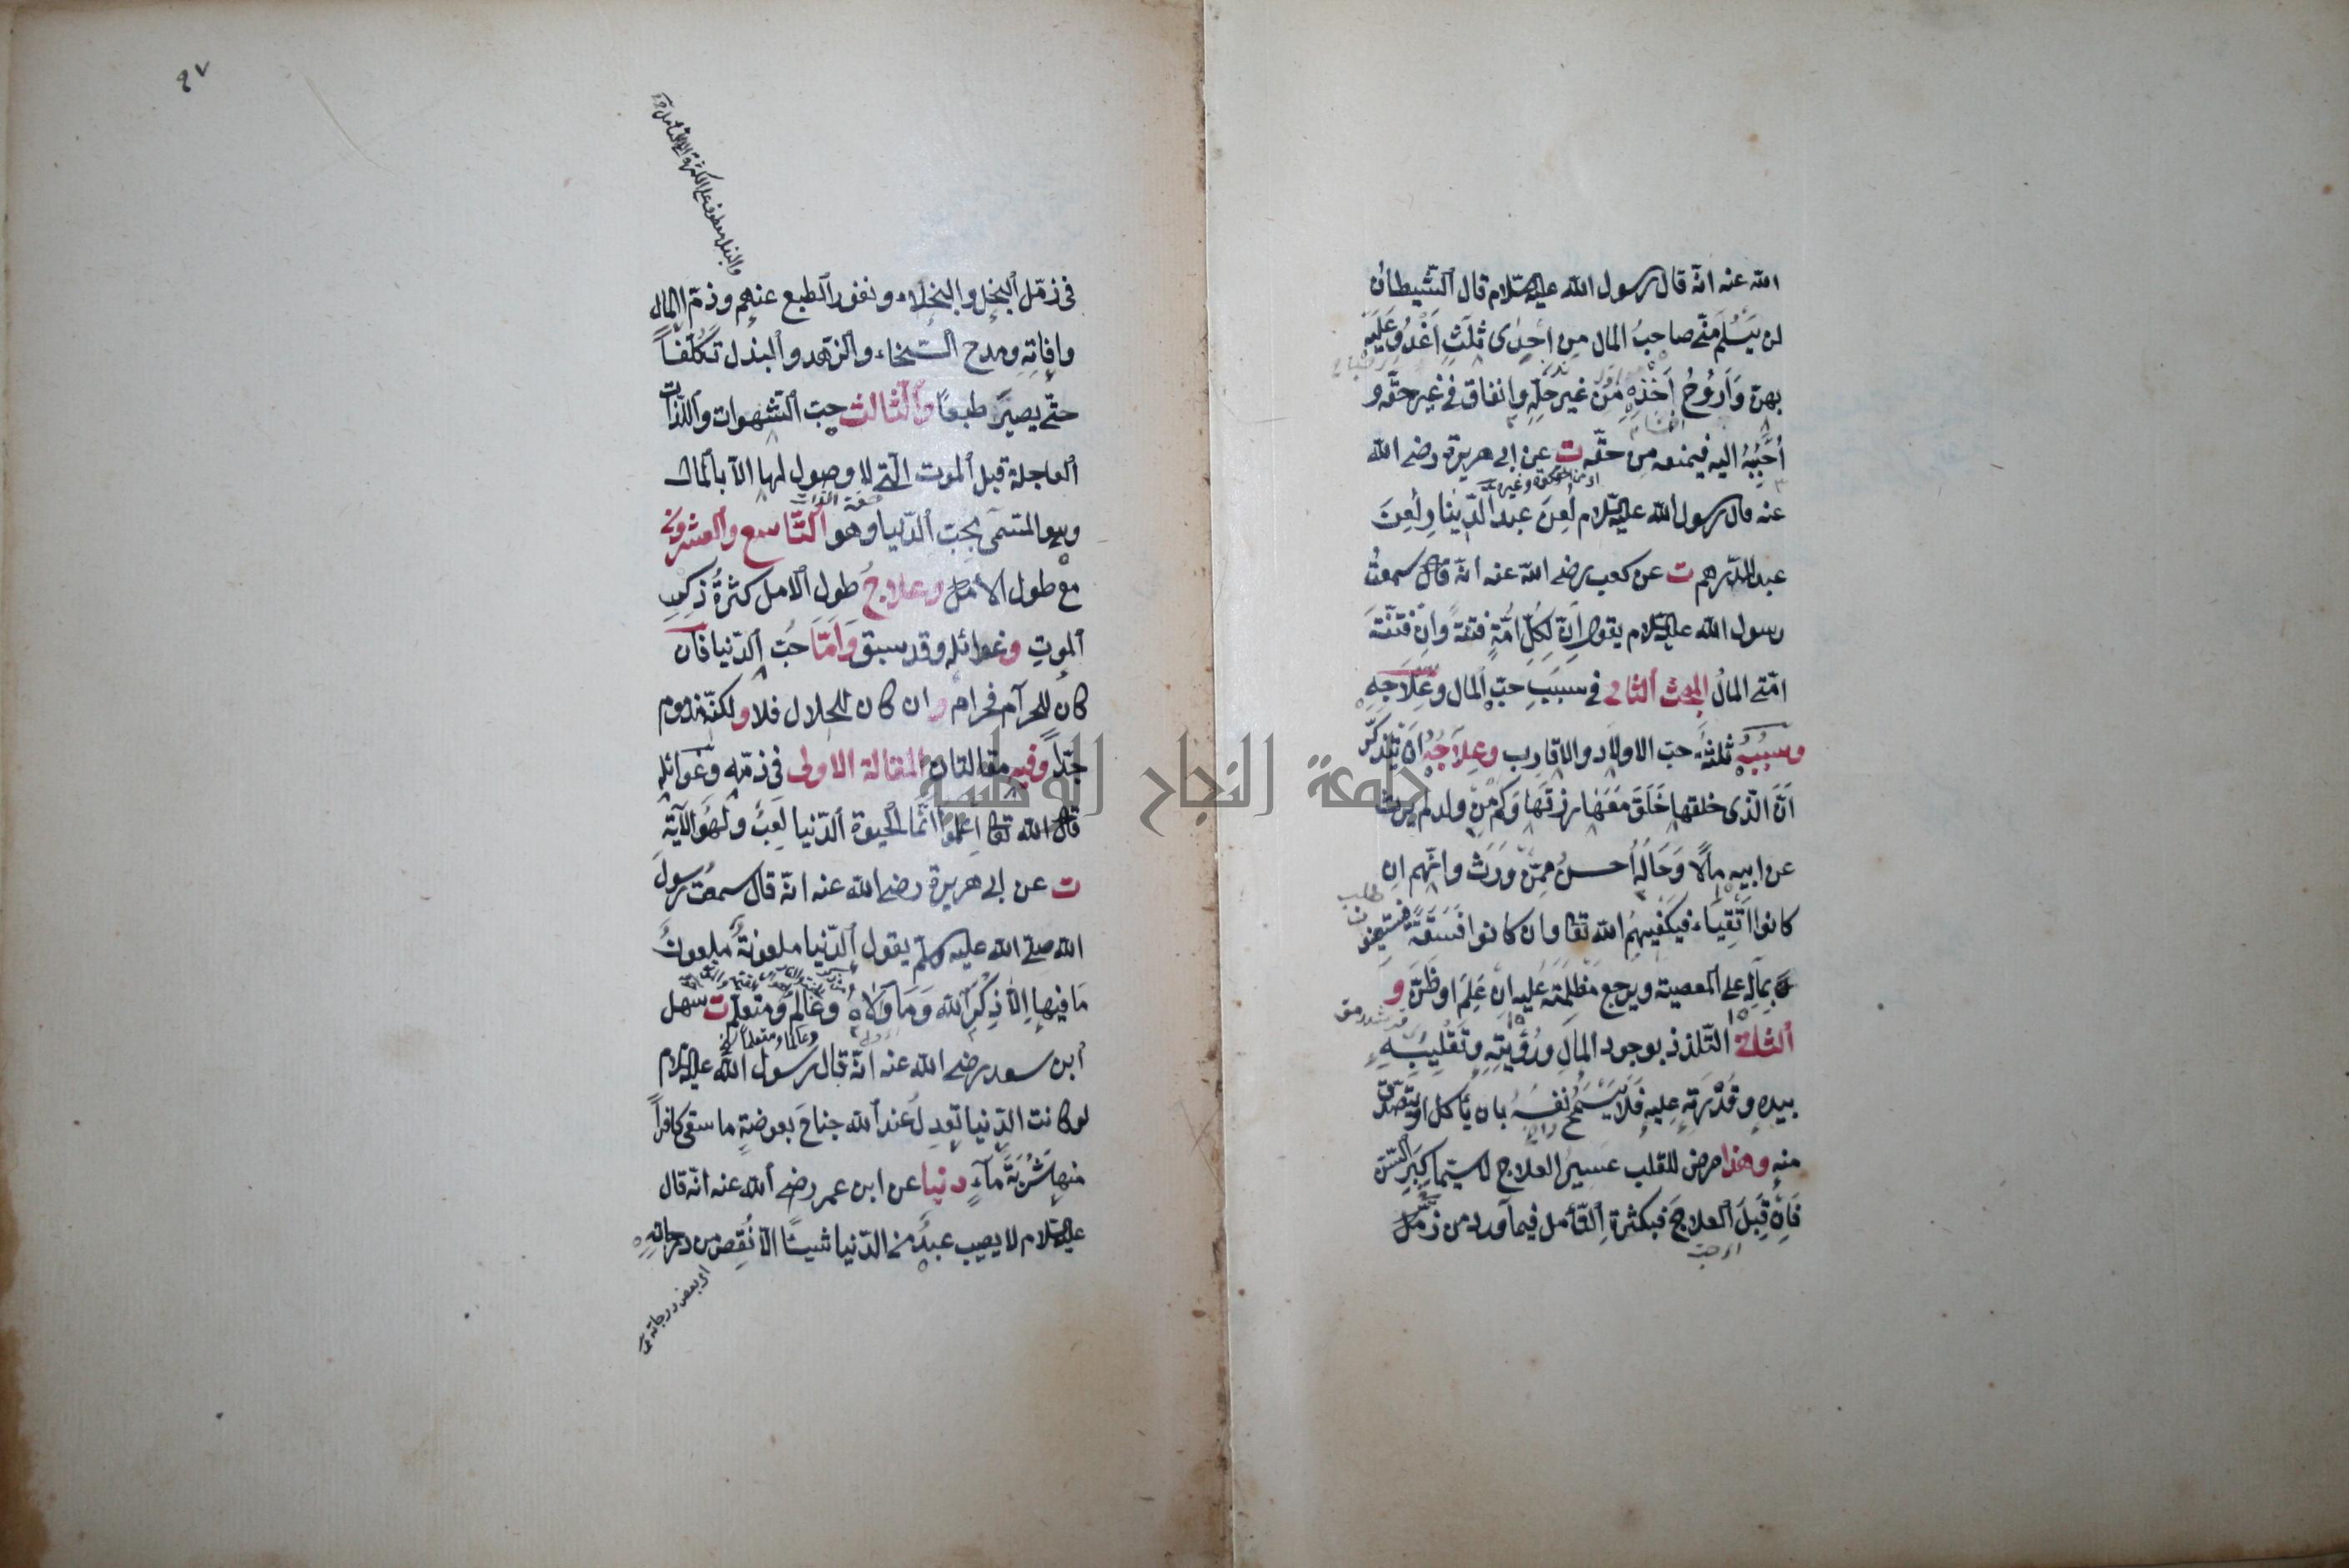 الله عنه انه قال رسول الله عليه السلام قال الشيطان
لن يسلم منى صاحب المال من احدى ثلث اغدو عليه
بهن واروح اخذه من غير حله وانفاق فى غير حقه و
احببه اليه فيمنعه من حقه ت عن ابى هريرة رضى الله
عنه قال رسول الله عليه السلام لعن عبد الدينار لعن
عبد الدرهم ت عن كعب رضى الله عنه انه قال سمعت
رسول الله عليه السلام يقول ان لكل امة فتنة وان فتنة
امتى المال المبحث الثانى فى سبب حب المال وعلاجه
وسببه ثلثة حب الاولاد والاقارب وعلاجه ان يتذكر
ان الذى خلقها خلق معها رزقها وكم من ولد لم يرث
عن ابيه مالا وحاله احسن ممن ورث وانهم ان
كانوا اتقياء فيكفيهم الله تعا وان كانوا فسقة فيستعينون
بماله على المعصية ويرجع مظلمته عليه ان علم او ظن و
الثانى التلذذ بوجود المال ورؤيته وتقليبه
بيده وقدرته عليه فلا يسمح نفسه بان ياكل او يتصدق
منه وهذا مرض للقلب عسير العلاج لا سيما كبر السن
فان قبل العلاج فبكثرة التأمل فيما ورد من ذم
٩٧
فى ذم البخل والبخلاء ونفور الطبع عنهم وذم المال
وافاته ومدح السخاء والزهد والبذل تكلفا
حتى يصير طبعا والثالث حب الشهوات واللذات
العاجلة قبل الموت التى لا وصول لها الا بالمال
وهو المسمى بحب الدنيا وهو التاسع والعشرون
مع طول الامل وعلاج طول الامل كثرة ذكر
الموت وغوائله وقد سبق واما حب الدنيا فان
كان للحرام فحرام وان كان للحلال فلا ولكنه مذموم
جدا وفيه مقالتان المقالة الاولى فى ذمه وغوائله
قال الله تعا اعلموا انما الحيوة الدنيا لعب ولهو الآية
ت عن ابى هريرة رضى الله عنه انه قال سمعت رسول
الله صلى الله عليه وسلم يقول الدنيا ملعونة ملعون
ما فيها الا ذكر الله وما والاه وعالم ومتعلم ت سهل
وعالما ومتعلما
ابن سعد رضى الله عنه انه قال رسول الله عليه السلام
لو كانت الدنيا تعدل عند الله جناح بعوضة ما سقى كافرا
منها شربة ماء دنيا عن ابن عمر رضى الله عنه انه قال
عليه السلام لا يصيب عبد من الدنيا شيئا الا نقص من درجاته
اى بعض درجاته
جامعة النجاح الوطنية